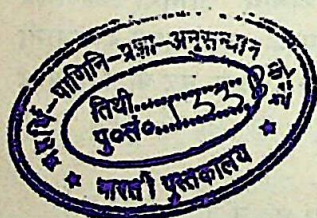 पाणिनि-प्रज्ञा-अनुसन्धान
तिथी..............
पु०सं०
★ भारती पुस्तकालय ★